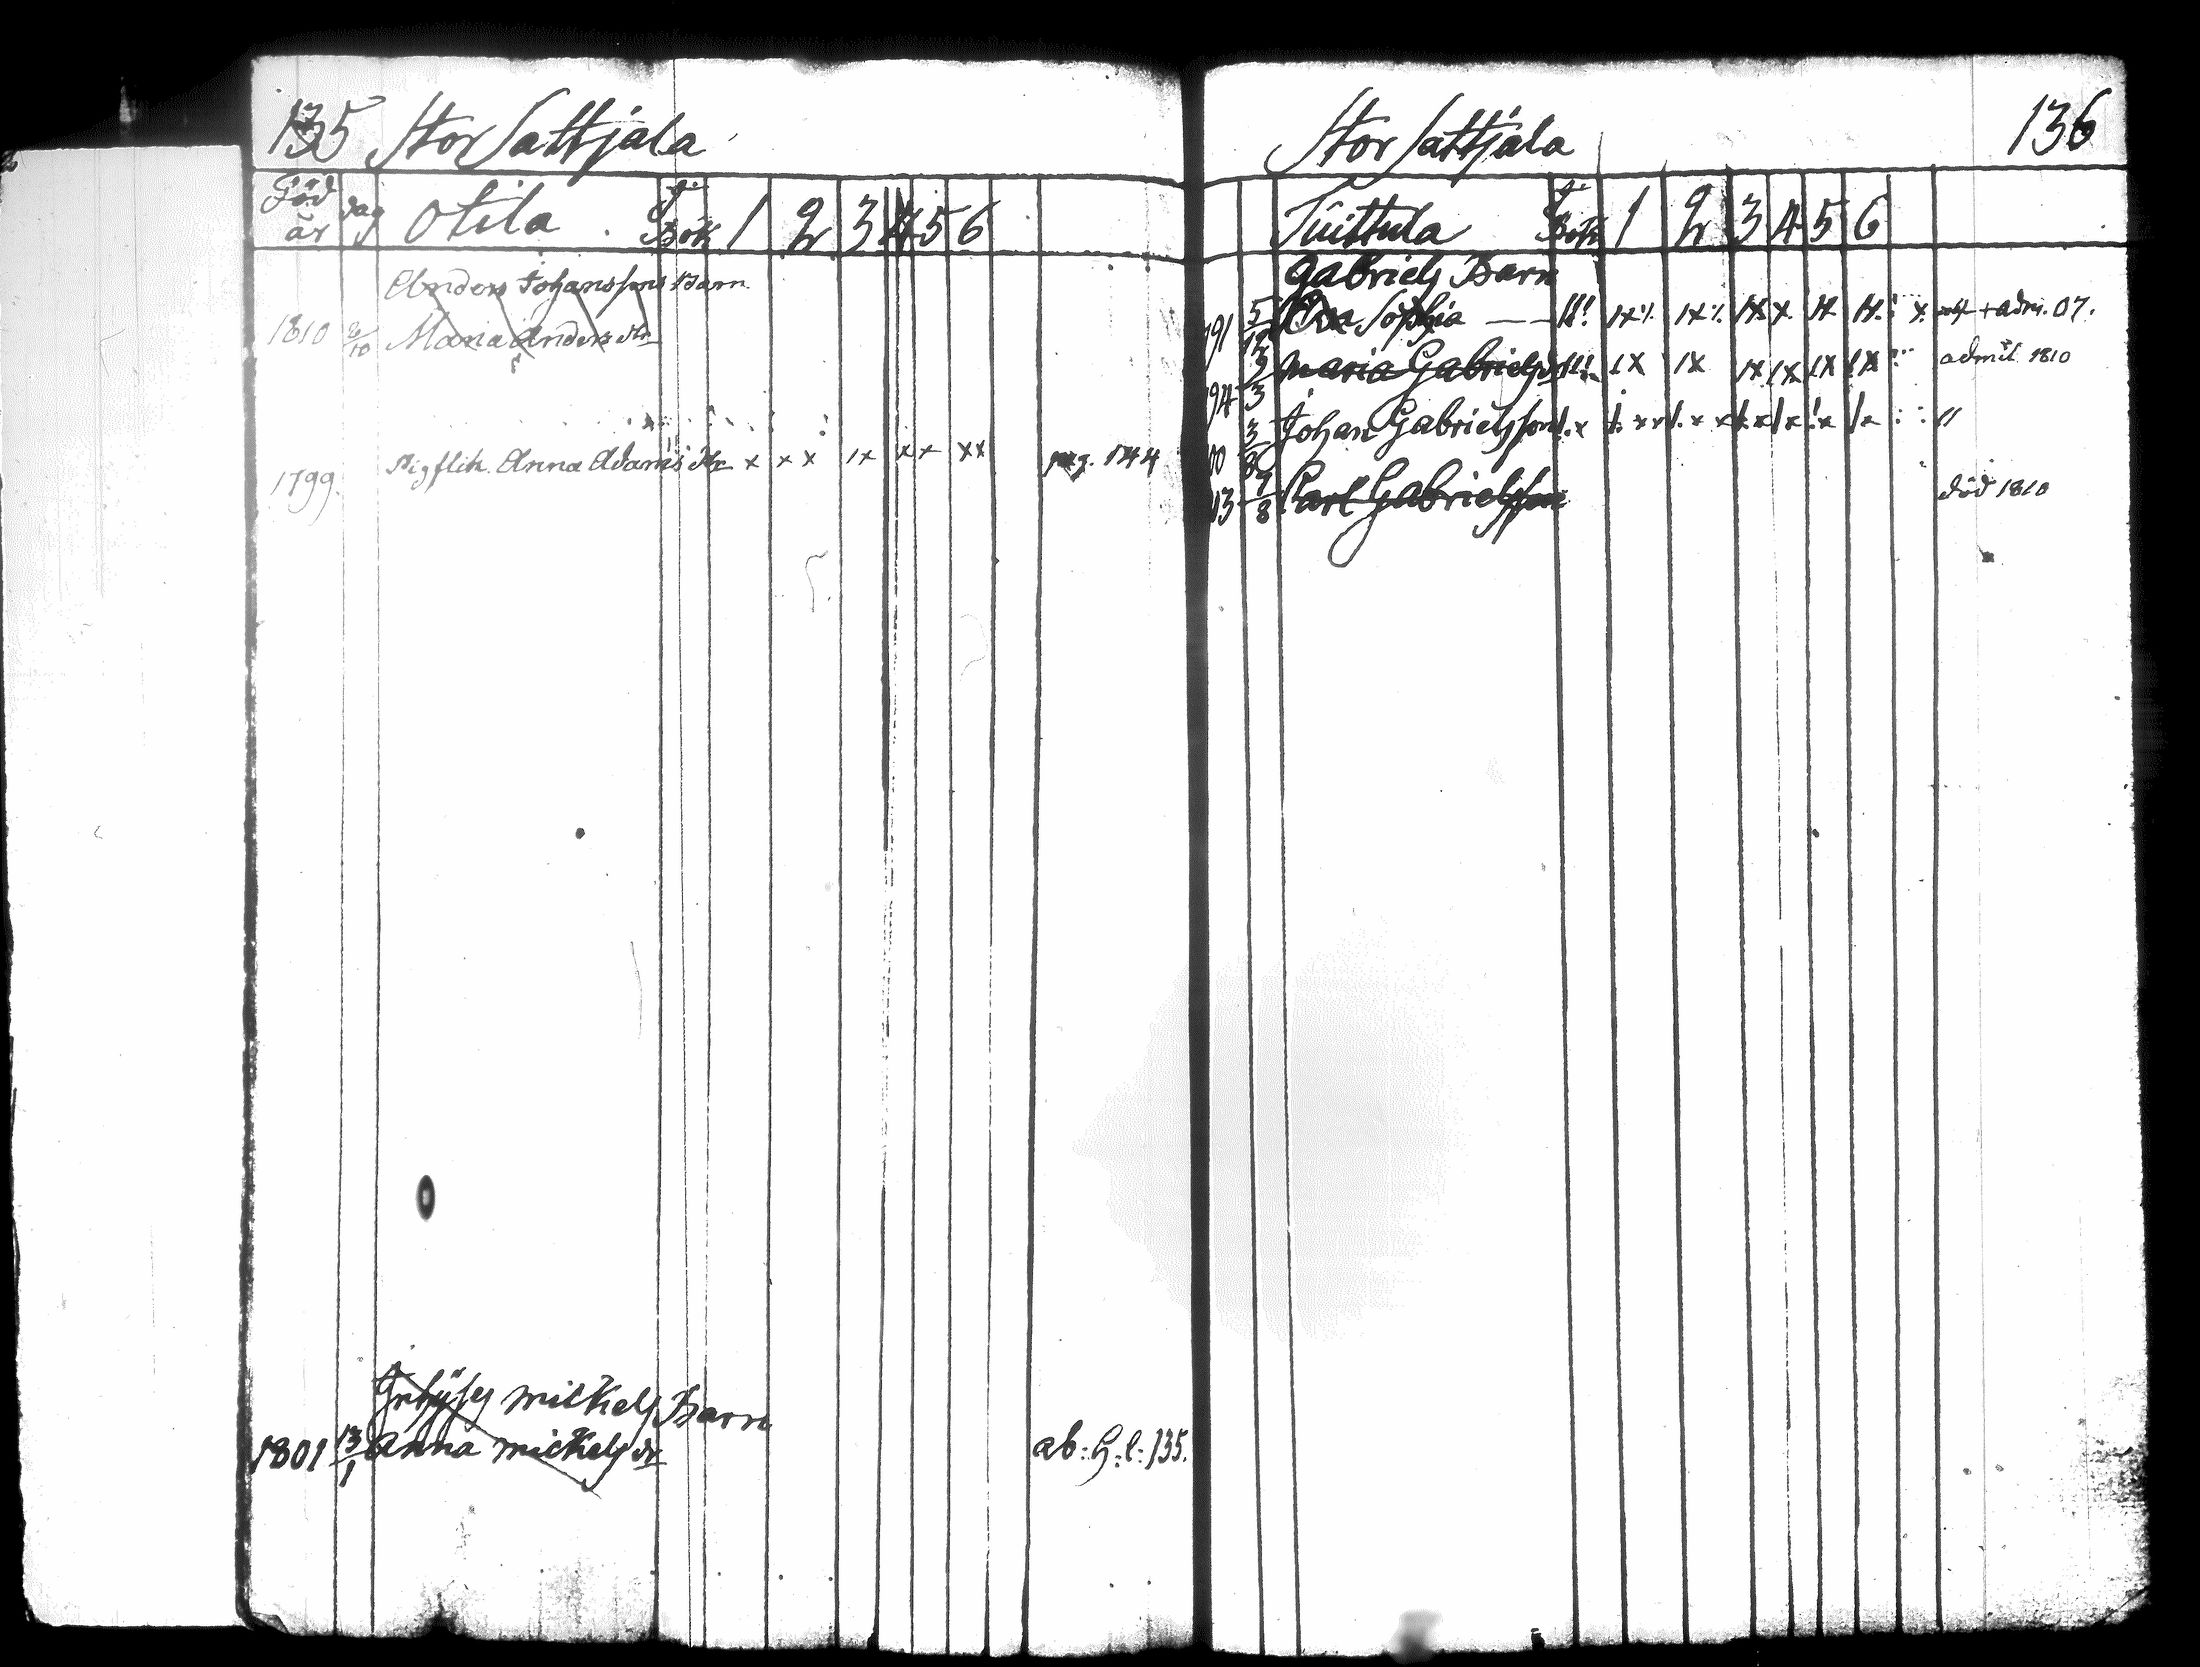 135 Stor Sattjala
Född år dag Otila i Bok 1 2 3 4 5 6
Anders Johanssons Barn
1810 Maria Anders dr
1799 Pigflik. Anna Adams dr x x x 1x x x x x pag. 144
Inhyses Mickels Barn
1801 13/1 Anna Mickels dr ab: h: l: 135.
Stor Sattjala 136
Tuittula i Bok 1 2 3 4 5 6
Gabriels Barn
91 5/12 Sophia adm. 07.
94 3/3 Maria Gabriels dr 1x 1x 1x 1x 1x 1x admit. 1810
00 3/8 Johan Gabrielsson
03 8 Carl Gabrielsson död 1810